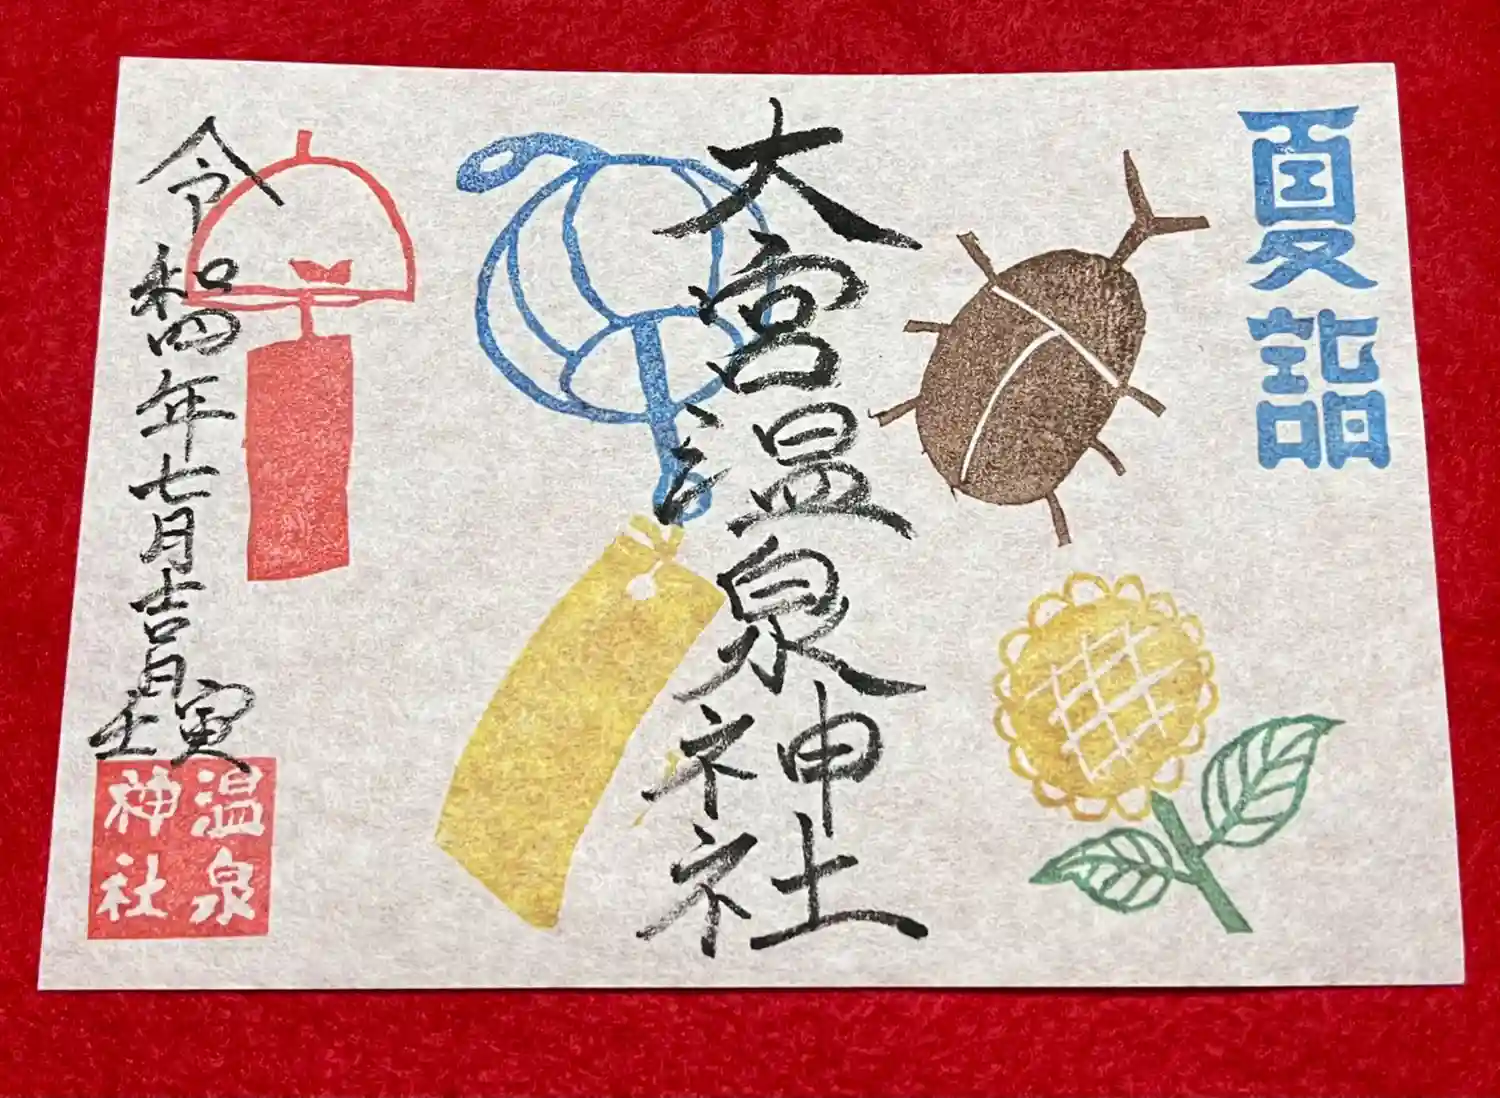 夏詣
大宮温泉神社
令和四年七月吉日
壬寅
温泉
神社